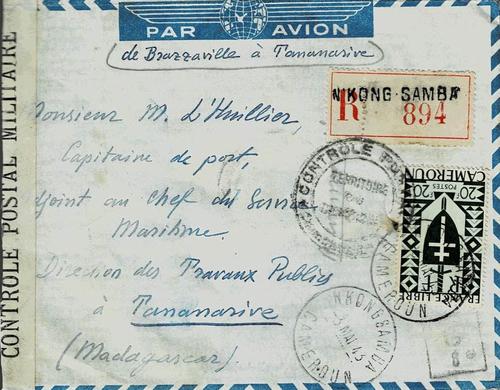 PAR AVION
de Brazzaville à Tananarive
CONTRÔLE POSTAL MILITAIRE
N'KONG-SAMBA
R 894
Monsieur M. L'Huillier,
Capitaine de port,
adjoint au Chef du Service
Maritime.
Direction des Travaux Publics
à Tananarive
(Madagascar)
CONTROLE
TERRITOIRE
DU
CAMEROUN
20F POSTES 20F
RF
FRANCE LIBRE
NKONGSAMBA
MAI
CAMEROUN
CAMEROUN